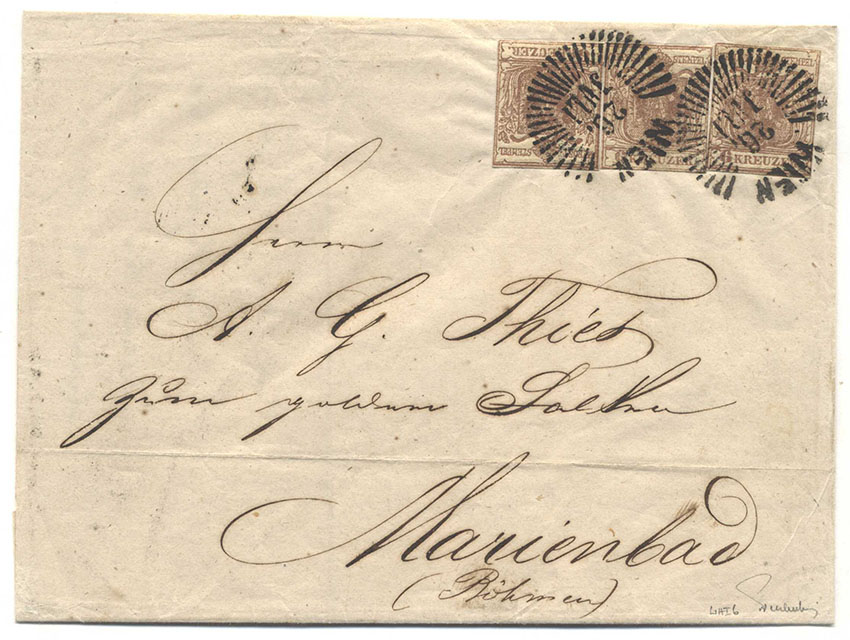 KREUZER STEMPEL
STEMPEL KREUZER
STEMPEL 6 KREUZER
WIEN 26 JULI
WIEN 26 JULI
Herrn
A. G. Thies
zum goldenen Falken
Marienbad
(Böhmen)